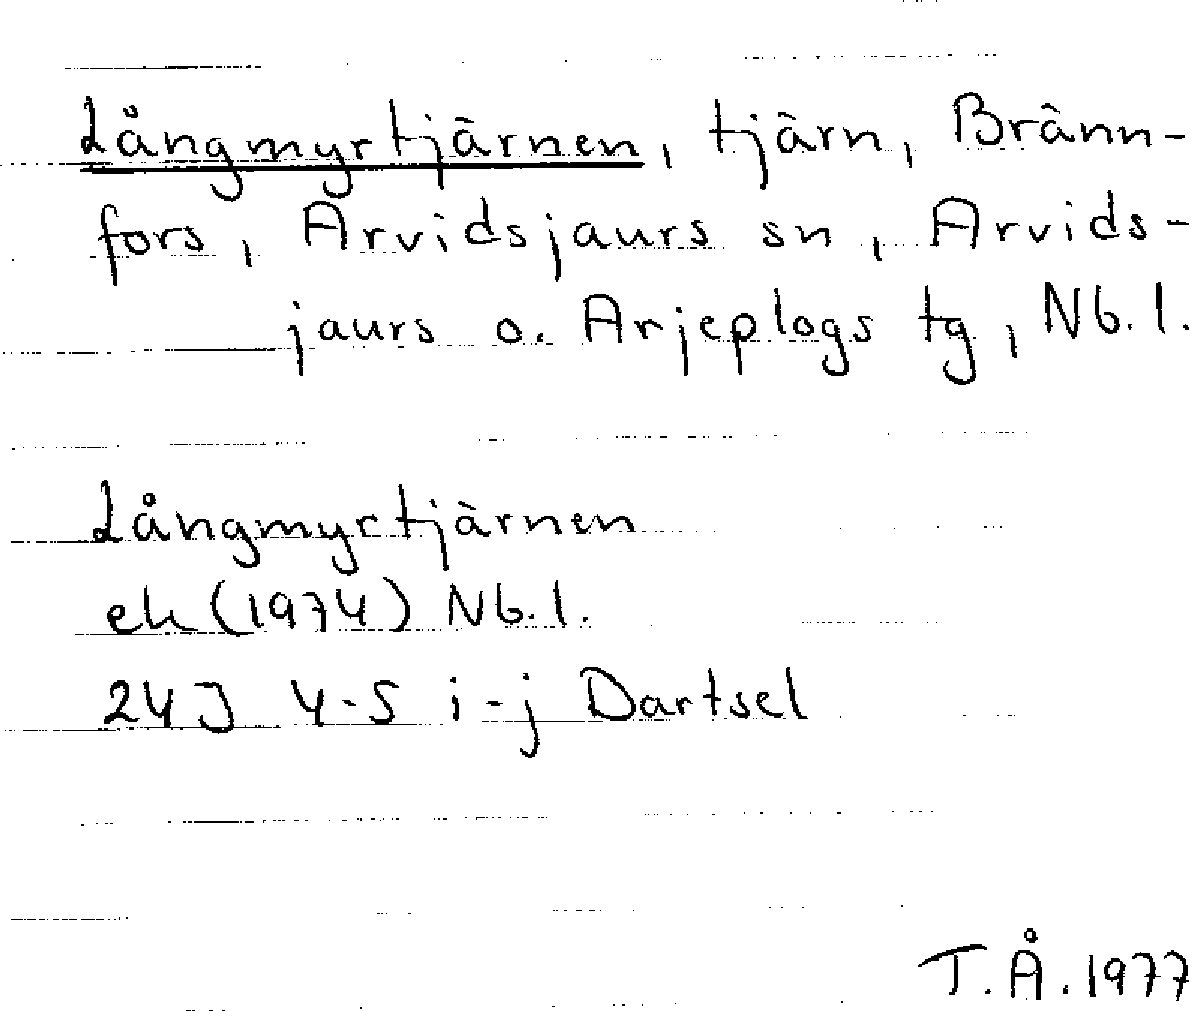 Långmyrtjärnen, tjärn, Bränn-
fors, Arvidsjaurs sn, Arvids-
jaurs o. Arjeplogs tg, Nb.l.
Långmyrtjärnen
ek (1974) Nb.l.
24J 4-5 i-j Dartsel
T.Å.1977